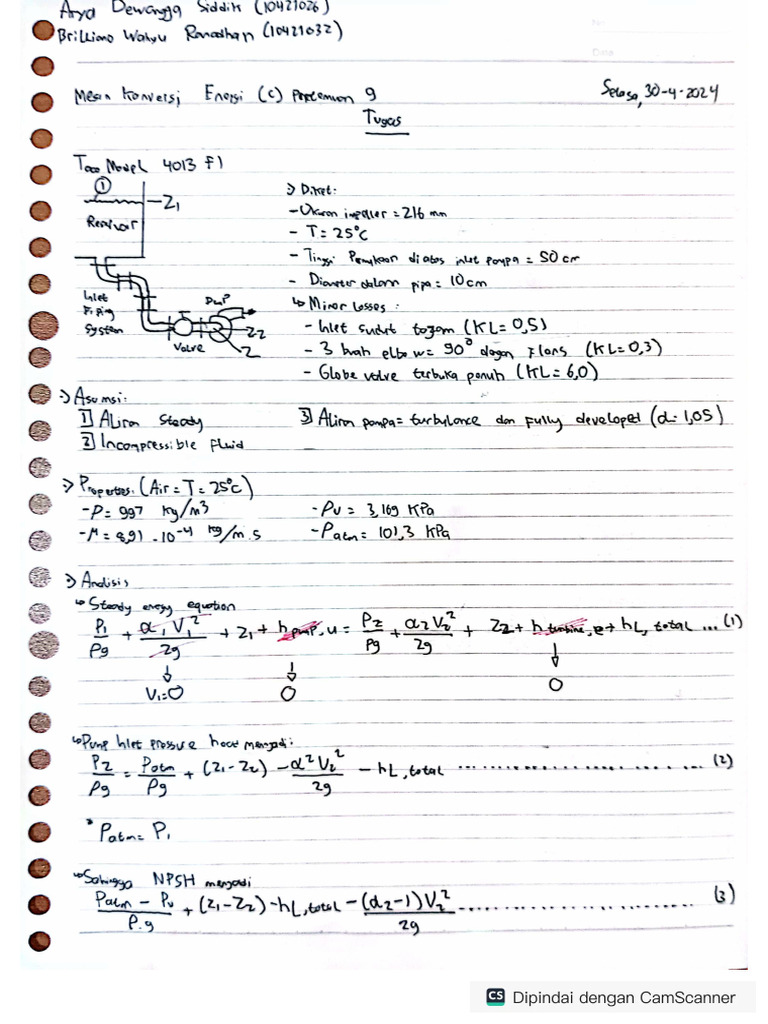 Arya Dewangga Siddik (10421026)
Brilliano Wahyu Ramadhan (10421032)
No
Date
Mesin Konversi Energi (c) Pertemuan 9
Selasa, 30-4-2024
Tugas
Taco Model 4013 FI
① 
Z1
Reservoir
Inlet
Piping
System
Pump
Valve
Z2
2
=> Diket:
- Ukuran impeller = 216 mm
- T = 25°C
- Tinggi Permukaan di atas inlet pompa = 50 cm
- Diameter dalam pipa = 10 cm
↳ Minor losses :
- Inlet sudut tajam (KL = 0,5)
- 3 buah elbow = 90° dengan flens (KL = 0,3)
- Globe valve terbuka penuh (KL = 6,0)
=> Asumsi:
1 Aliran Steady
2 Incompressible Fluid
3 Aliran pompa = turbulance dan Fully developed (α = 1,05)
=> Properties. (Air = T = 25°C)
- ρ = 997 kg/m3
- μ = 8,91 . 10^-4 kg/m.s
- Pv = 3,169 KPa
- Patm = 101,3 KPa
=> Analisis
↳ Steady energy equation
P1/ρg + α1 V1²/2g + z1 + h pump, u = P2/ρg + α2 V2²/2g + Z2 + h turbine, e + hL, total ... (1)
V1=0
0
0
↳ Pump Inlet Pressure head menjadi:
P2/ρg = Patm/ρg + (z1 - z2) - α2 V2²/2g - hL, total .......... (2)
* Patm = P1
↳ Sehingga NPSH menjadi
Patm - Pv/ρ.g + (z1 - Z2) - hL, total - (α2-1) V2²/2g .......... (3)
CS Dipindai dengan CamScanner